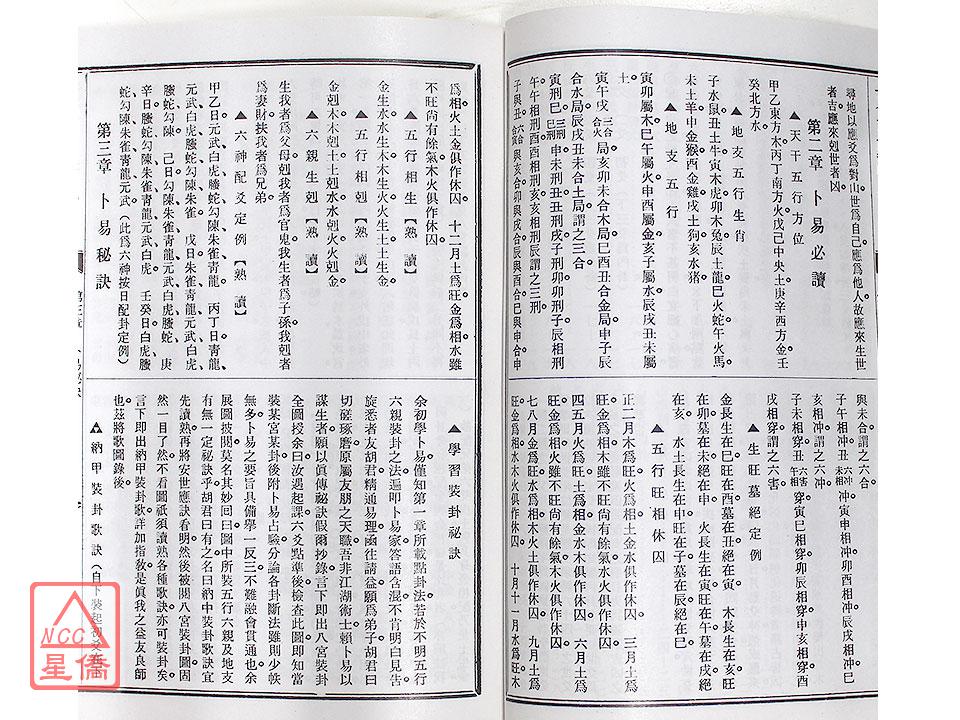 尋地以應爻爲對山。世爲自己應爲他人。故應來生世
者吉應來剋世者凶
第二章　卜易必讀
▲天干五行方位
甲乙東方木丙丁南方火戊己中央土庚辛西方金壬
癸北方水。
▲地支五行生肖
子水鼠丑土牛寅木虎卯木兔辰土龍巳火蛇午火馬
未土羊申金猴酉金雞戌土狗亥水猪
▲地支五行
寅卯屬木巳午屬火申酉屬金亥子屬水辰戌丑未屬
土。
寅午戌三合合火局亥卯未合木局巳酉丑合金局申子辰
合水局辰戌丑未合土局謂之三合
寅刑巳三刑巳刑申丑刑未丑丑刑戌子刑卯卯刑子辰相刑
午午相刑酉酉相刑亥亥相刑辰謂之三刑
子與丑六合合寅與亥合卯與戌合辰與酉合巳與申合申
與未合謂之六合
子午相冲六冲丑未相冲寅申相冲卯酉相冲辰戌相冲巳
亥相冲謂之六冲
子未相穿六害丑午相穿寅巳相穿卯辰相穿申亥相穿酉
戌相穿謂之六害
▲生旺墓絕定例
金長生在巳旺在酉墓在丑絕在寅　木長生在亥旺
在卯墓在未絕在申　火長生在寅旺在午墓在戌絕
在亥　水土長生在申旺在子墓在辰絕在巳
▲五行旺相休囚
正二月木爲旺。火爲相金水土俱作休囚　三月土爲
旺。金爲相木雖不旺尚有餘氣水火俱作休囚。
四五月火爲旺土爲相金水木俱作休囚　六月土爲
旺金爲相火雖不旺尚有餘氣水木俱作休囚
七八月金爲旺水爲相木火土俱作休囚　九月土爲
旺金爲相水木火俱作休囚　十月十一月水爲旺木
爲相火土金俱作休囚　十二月土爲旺金爲相水雖
不旺尚有餘氣木火俱作休囚
▲五行相生【熟讀】
金生水水生木木生火火生土土生金
▲五行相剋【熟讀】
金剋木木剋土土剋水水剋火火剋金
▲六親生剋【熟讀】
生我者爲父母剋我者爲官鬼我生者爲子孫我剋者
爲妻財挾我者爲兄弟
▲六神配爻定例【熟讀】
甲乙日元武白虎螣蛇勾陳朱雀青龍　丙丁日青龍
元武白虎螣蛇勾陳朱雀　戊日朱雀青龍元武白虎
螣蛇勾陳　己日勾陳朱雀青龍元武白虎螣蛇　庚
辛日螣蛇勾陳朱雀青龍元武白虎　壬癸日白虎螣
蛇勾陳朱雀青龍元武。（此爲六神按日配卦定例）
第三章　卜易秘訣
▲學習裝卦秘訣
余初學卜易僅知第一章所載點卦法若於不明五行
六親裝卦之法遍叩卜易家答語含混不肯明白見告
旋悉者友胡君精通易理函往請益願爲弟子胡君曰
切磋琢磨原屬友朋之天職吾非江湖術士賴卜易以
謀生者願以眞傳祕訣假爾抄錄言下即出八宮裝卦
全圖授余曰汝遇起課六爻點準後檢查此圖即知當
裝某宮某卦後附卜易占驗分論各卦斷法雖則少帙
無多卜易之要旨具備舉一反三不難融會貫通也余
展圖披閱莫名其妙囘曰圖中所裝五行六親及地支
有無一定祕訣乎胡君曰有之名曰納甲裝卦歌訣宜
先讀熟再將安世應訣看明然後被閱八宮裝卦圖固
然一目了然不看圖祇須讀熟各種歌訣亦可裝卦矣
言下即出納甲裝卦歌詳加指敎是眞我之益友良師
也。茲將歌圖錄後。
▲納甲裝卦歌訣（自下裝起初爻
NCC
星僑